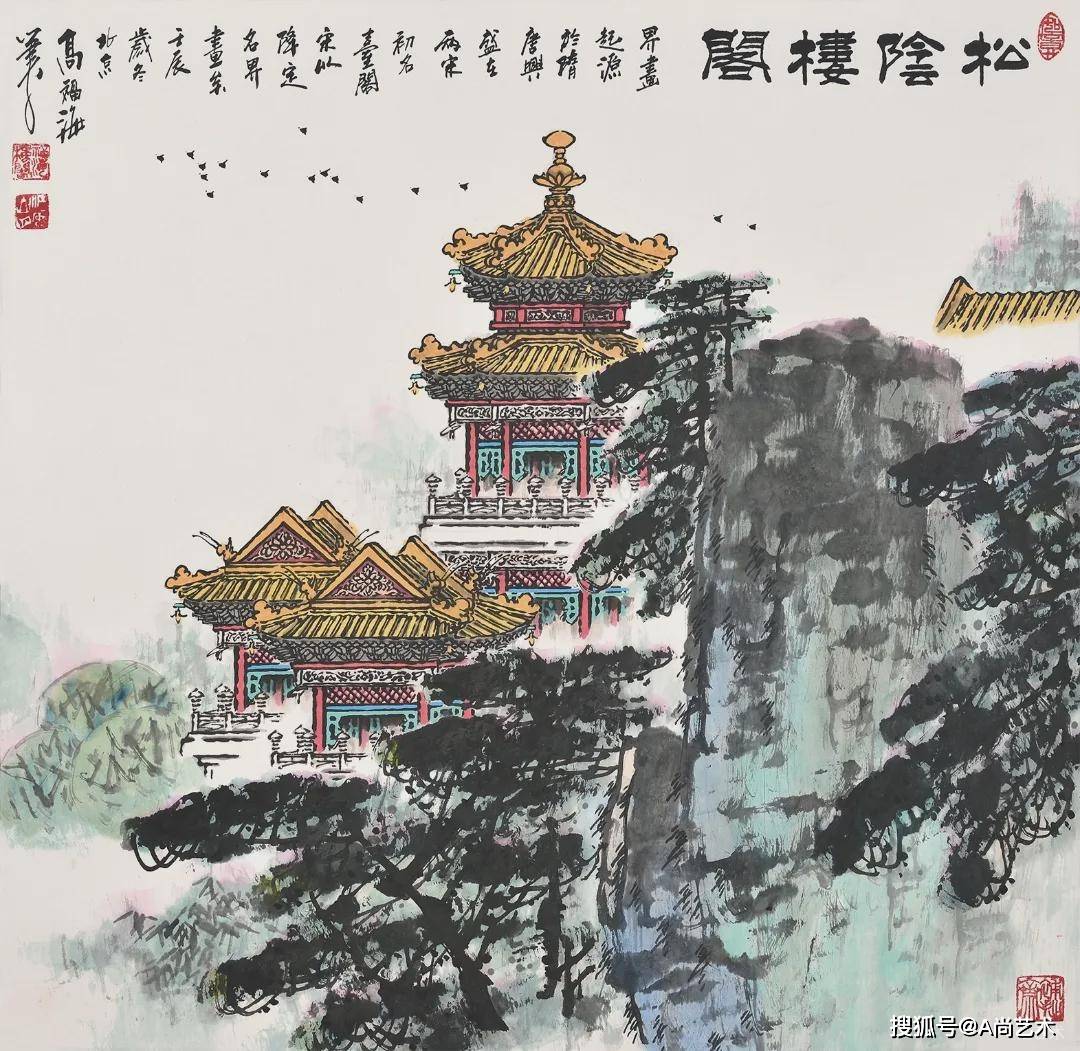 松陰樓閣
界畫
起源
於隋
唐興
盛在
兩宋
初名
臺閣
宋以
降定
名界
畫矣
壬辰
歲冬
北京
高福海
搜狐号@A尚艺术